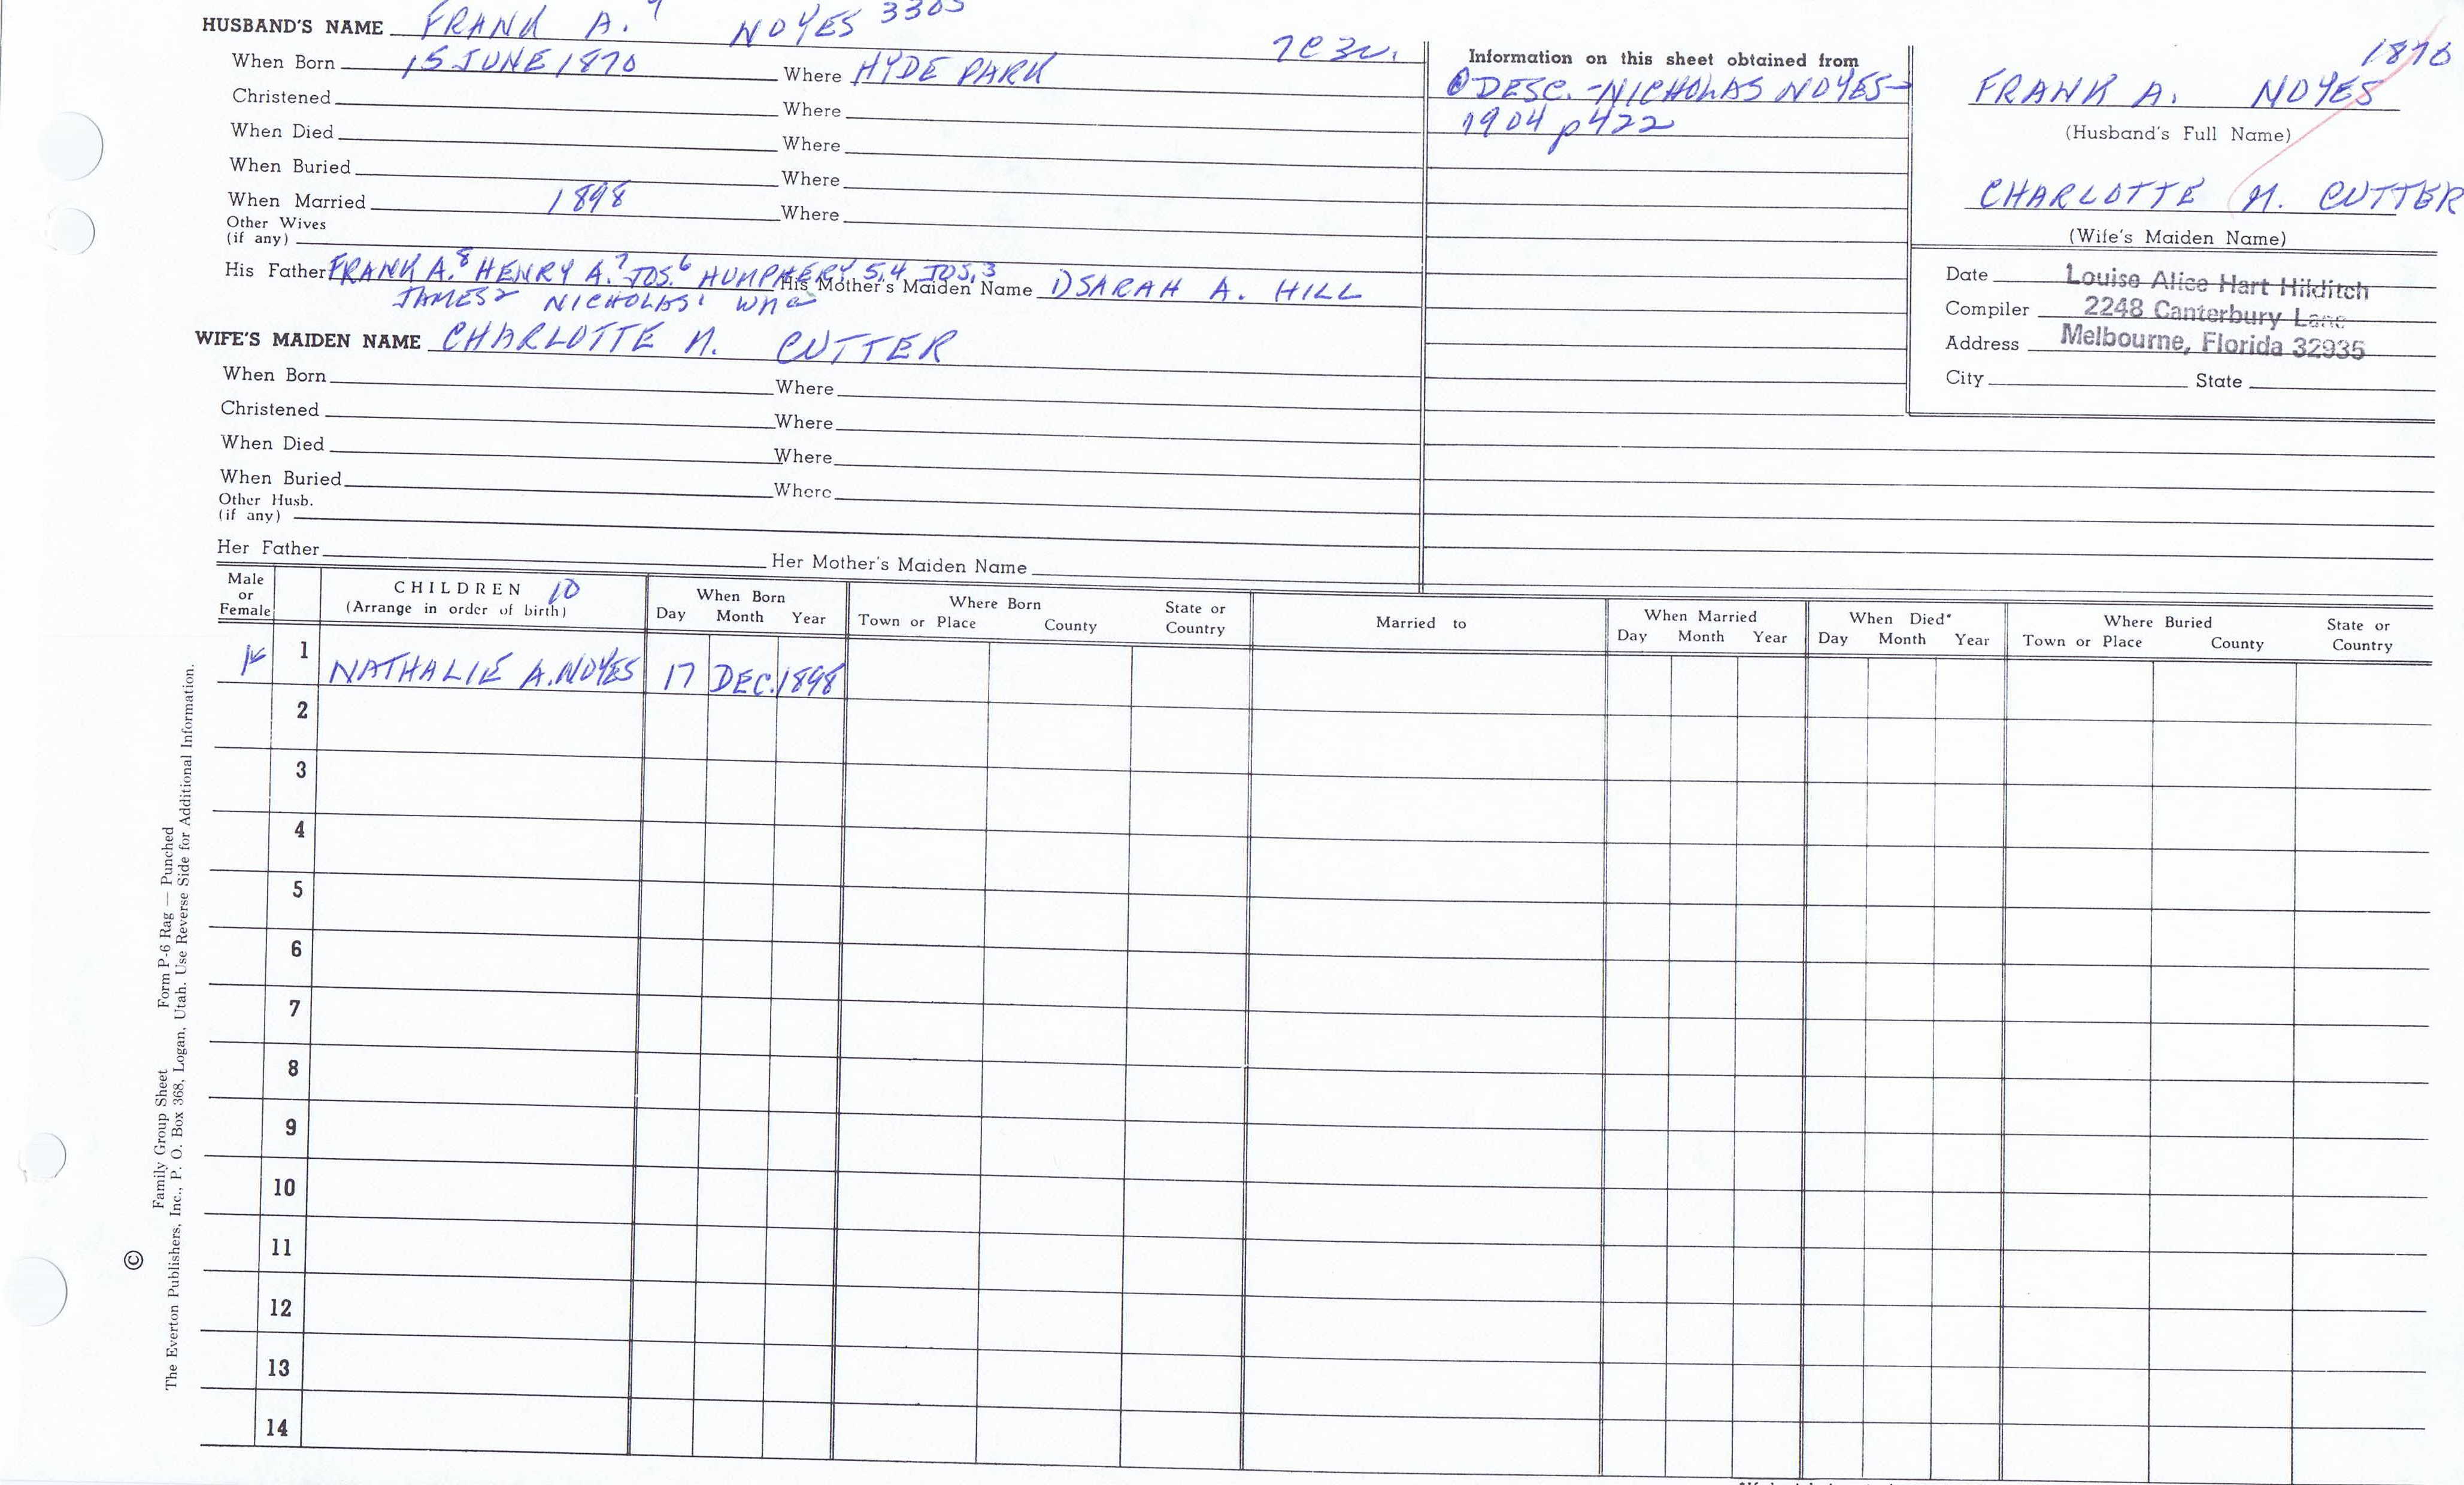 HUSBAND'S NAME FRANK A. 9 NOYES 3305
When Born 15 JUNE 1870 Where HYDE PARK
Christened Where
When Died Where
When Buried Where
When Married 1898 Where
Other Wives
(if any)
His Father FRANK A.8 HENRY A.7 JOS.6 HUMPHERY 5,4 JOS.3 His Mother's Maiden Name SARAH A. HILL
JAMES2 NICHOLAS1 Wm
WIFE'S MAIDEN NAME CHARLOTTE M. CUTTER
When Born Where
Christened Where
When Died Where
When Buried Where
Other Husb.
(if any)
Her Father Her Mother's Maiden Name
Information on this sheet obtained from
DESC. - NICHOLAS NOYES -
1904 p422
1870
FRANK A. NOYES
(Husband's Full Name)
CHARLOTTE M. CUTTER
(Wife's Maiden Name)
Date Louise Alice Hart Hilditch
Compiler 2248 Canterbury Lane
Address Melbourne, Florida 32935
City State
Male or Female CHILDREN 10 (Arrange in order of birth) When Born Day Month Year Where Born Town or Place County State or Country Married to When Married Day Month Year When Died* Day Month Year Where Buried Town or Place County State or Country
1 NATHALIE A. NOYES 17 DEC. 1898
2
3
4
5
6
7
8
9
10
11
12
13
14
© Family Group Sheet Form P-6 Rag — Punched
The Everton Publishers, Inc., P. O. Box 368, Logan, Utah. Use Reverse Side for Additional Information.